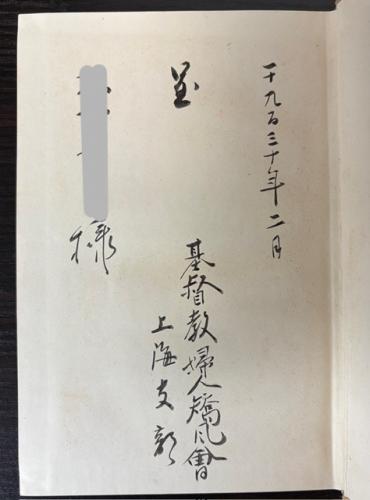 一千九百三十年二月
呈
様
基督教婦人矯風會
上海支部